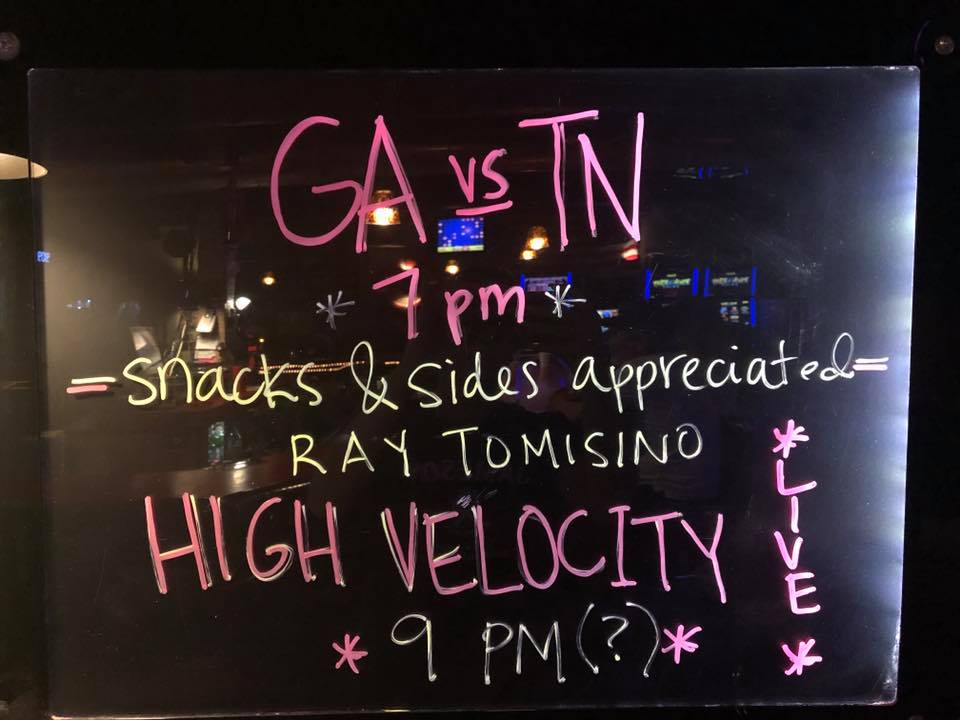 GA vs TN
* 7 pm *
= snacks & sides appreciated =
RAY TOMISINO
HIGH VELOCITY
* 9 PM (?) *
* LIVE *